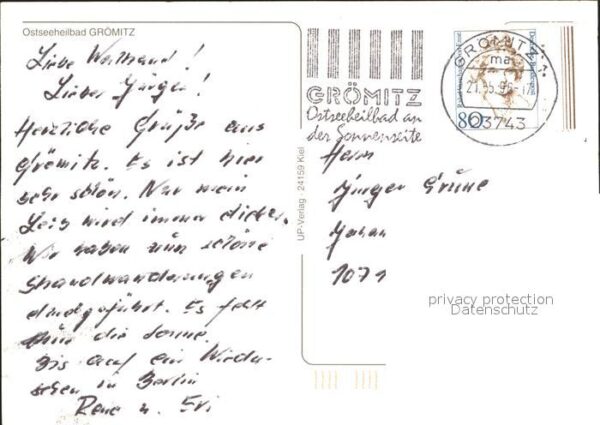 Ostseeheilbad GRÖMITZ
Liebe Waltraud!
Lieber Jürgen!
Herzliche Grüße aus
Grömitz. Es ist hier
sehr schön. Nur mein
wird immer dicker.
Wir haben schöne
Strandwanderungen
Es fehlt
nur die Sonne.
Bis auf ein Wieder-
sehen in Berlin
Rene u. Evi
UP-Verlag · 24159 Kiel
GRÖMITZ
Ostseeheilbad an
der Sonnenseite
GRÖMITZ 1
ma
23743
80
Herrn
Jürgen Grüne
Johan
1071
privacy protection
Datenschutz